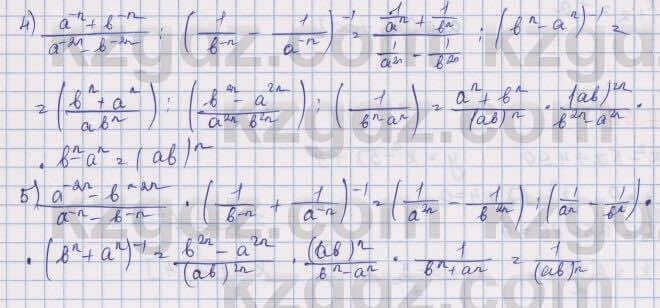 4) (a^-n + b^-n)/(a^-2n - b^-2n) : (1/b^-n - 1/a^-n)^-1 = (1/a^n + 1/b^n)/(1/a^2n - 1/b^2n) : (b^n - a^n)^-1 =
= ((b^n + a^n)/(ab^n)) : ((b^2n - a^2n)/(a^2n b^2n)) : (1/(b^n a^n)) = (a^n + b^n)/(ab)^n · (ab)^2n/(b^2n - a^2n) ·
· b^n - a^n = (ab)^n
5) (a^-2n - b^-2n)/(a^-n - b^-n) · (1/b^-n + 1/a^-n)^-1 = (1/a^2n - 1/b^2n) : (1/a^n - 1/b^n) ·
· (b^n + a^n)^-1 = (b^2n - a^2n)/(ab)^2n · (ab)^n/(b^n - a^n) · 1/(b^n + a^n) = 1/(ab)^n
kzgdz.com